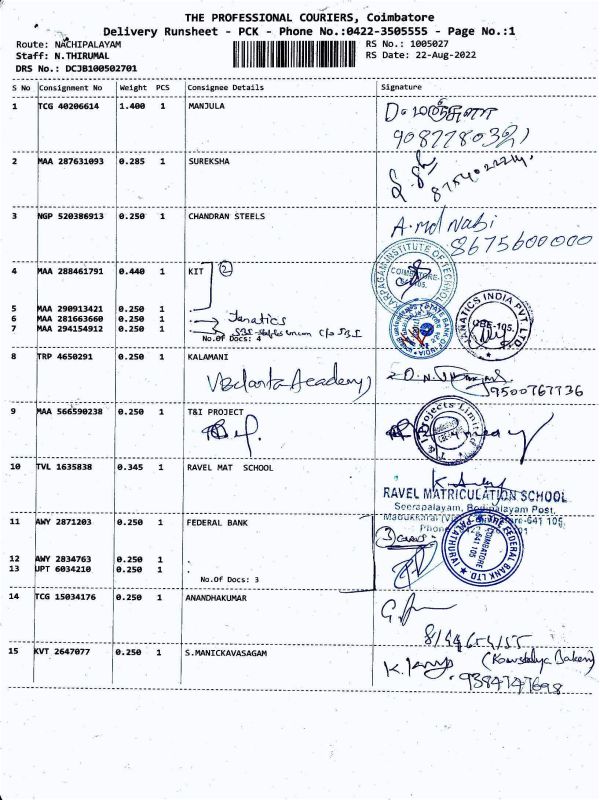 THE PROFESSIONAL COURIERS, Coimbatore
Delivery Runsheet - PCK - Phone No.:0422-3505555 - Page No.:1
Route: NACHIPALAYAM RS No.: 1005027
Staff: N.THIRUMAL RS Date: 22-Aug-2022
DRS No.: DCJB100502701
S No Consignment No Weight PCS Consignee Details Signature
1 TCG 40206614 1.400 1 MANJULA
2 MAA 287631093 0.285 1 SUREKSHA
3 NGP 520386913 0.250 1 CHANDRAN STEELS
A.md Nabi
8675600000
4 MAA 288461791 0.440 1 KIT 2
KARPAGAM INSTITUTE OF TECHNOLOGY
COIMBATORE-
641105.
5 MAA 290913421 0.250 1
6 MAA 281663660 0.250 1 Janatics
7 MAA 294154912 0.250 1
No.Of Docs: 4
STATE BANK OF INDIA
JANATICS INDIA PVT. LTD.
CBE-105.
8 TRP 4650291 0.250 1 KALAMANI
Vedanta Academy
9500767736
9 MAA 566590238 0.250 1 T&I PROJECT
T & I Projects Limited
10 TVL 1635838 0.345 1 RAVEL MAT SCHOOL
RAVEL MATRICULATION SCHOOL
Seerapalayam, Bodipalayam Post,
11 AWY 2871203 0.250 1 FEDERAL BANK
3
THE FEDERAL BANK LTD.
PALATHURAI
COIMBATORE
641 105
12 AWY 2834763 0.250 1
13 UPT 6034210 0.250 1
No.Of Docs: 3
14 TCG 15034176 0.250 1 ANANDHAKUMAR
15 KVT 2647077 0.250 1 S.MANICKAVASAGAM
9384747698